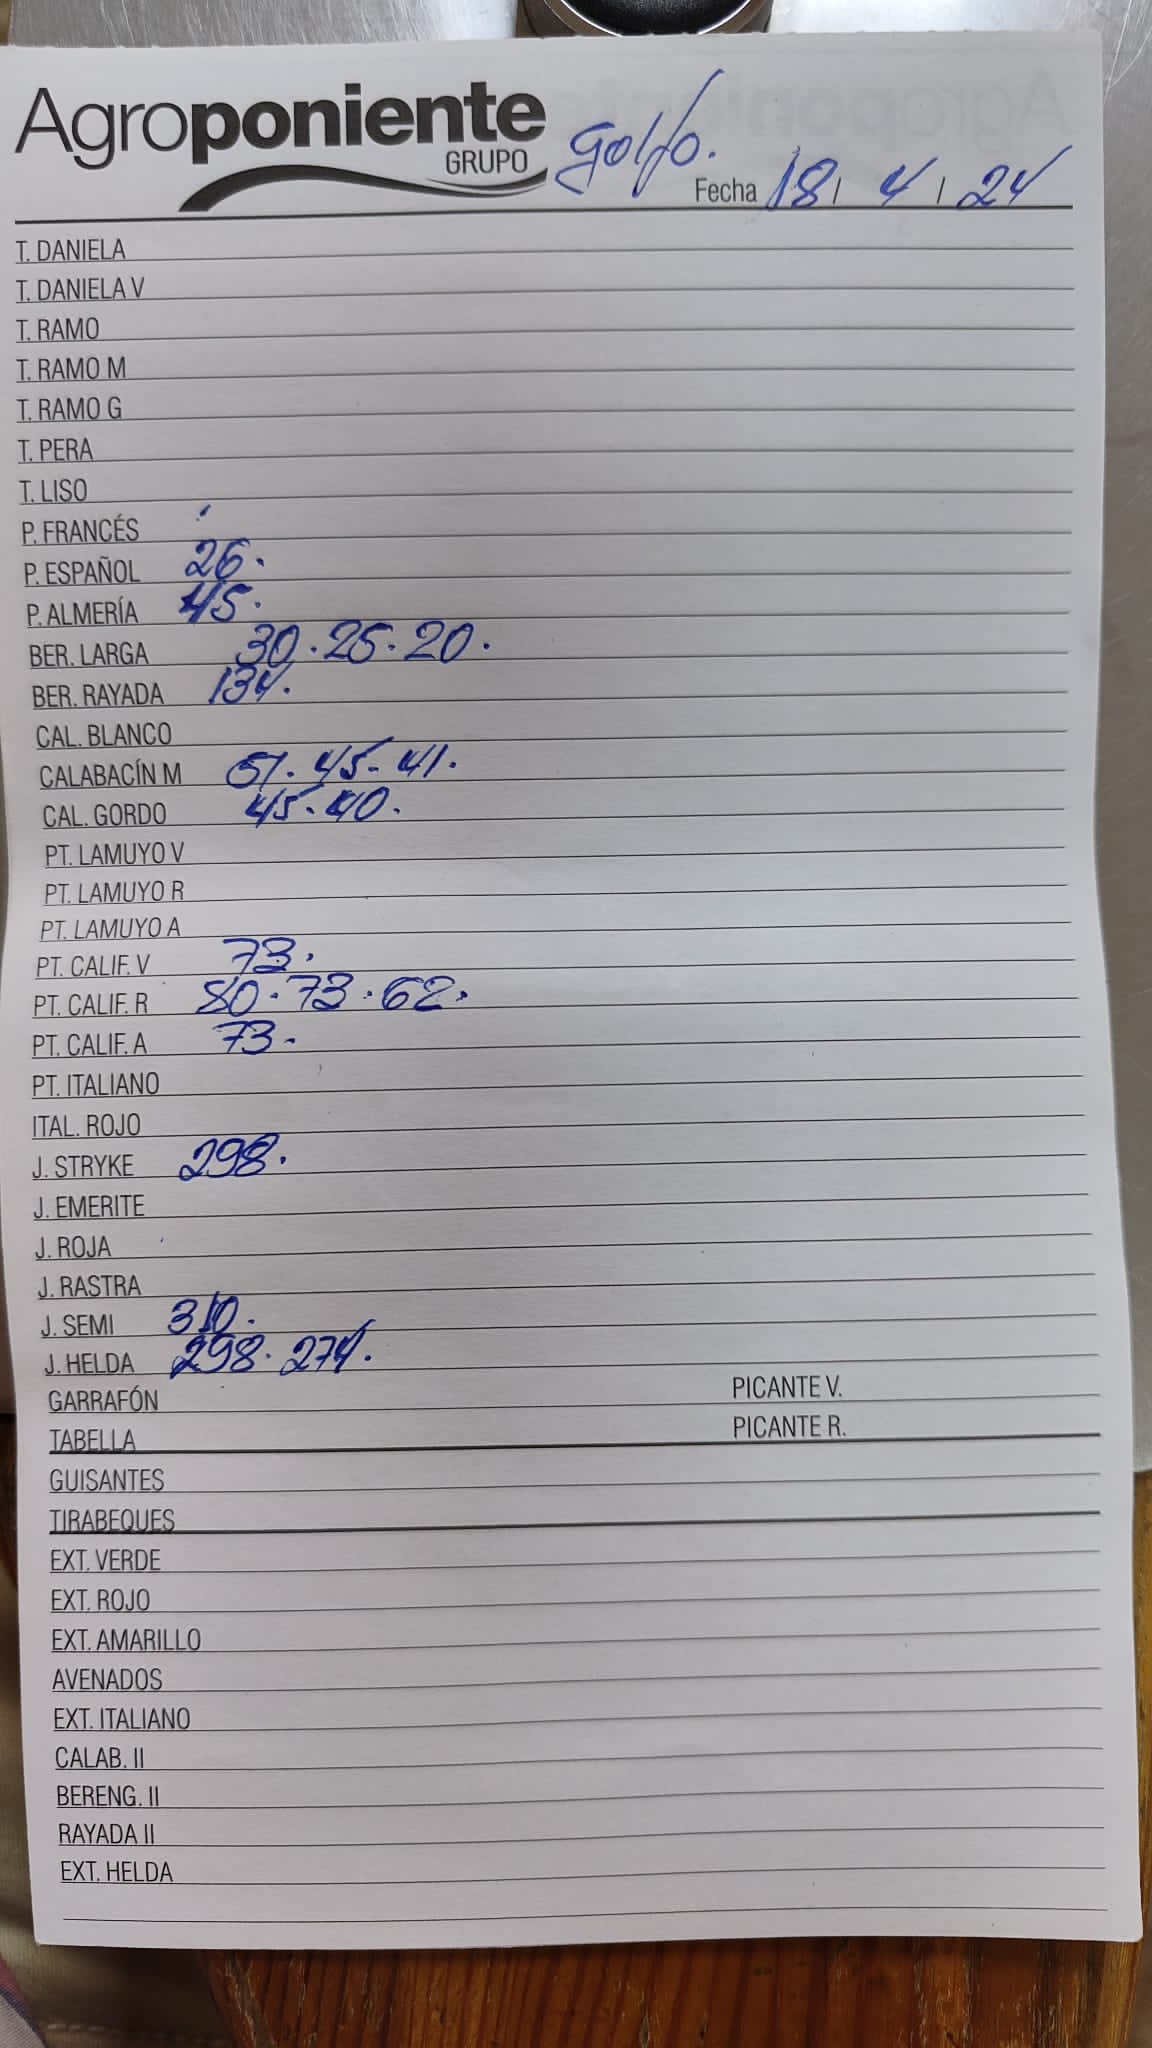 Agroponiente
GRUPO
golfo.
Fecha 18 / 4 / 24
T. DANIELA
T. DANIELA V
T. RAMO
T. RAMO M
T. RAMO G
T. PERA
T. LISO
P. FRANCÉS
P. ESPAÑOL 26.
P. ALMERÍA 45.
BER. LARGA 30. 25. 20.
BER. RAYADA 134.
CAL. BLANCO
CALABACÍN M 51. 45. 41.
CAL. GORDO 45. 40.
PT. LAMUYO V
PT. LAMUYO R
PT. LAMUYO A
PT. CALIF. V 73.
PT. CALIF. R 80. 73. 62.
PT. CALIF. A 73.
PT. ITALIANO
ITAL. ROJO
J. STRYKE 298.
J. EMERITE
J. ROJA
J. RASTRA
J. SEMI 310.
J. HELDA 298. 274.
GARRAFÓN PICANTE V.
TABELLA PICANTE R.
GUISANTES
TIRABEQUES
EXT. VERDE
EXT. ROJO
EXT. AMARILLO
AVENADOS
EXT. ITALIANO
CALAB. II
BERENG. II
RAYADA II
EXT. HELDA